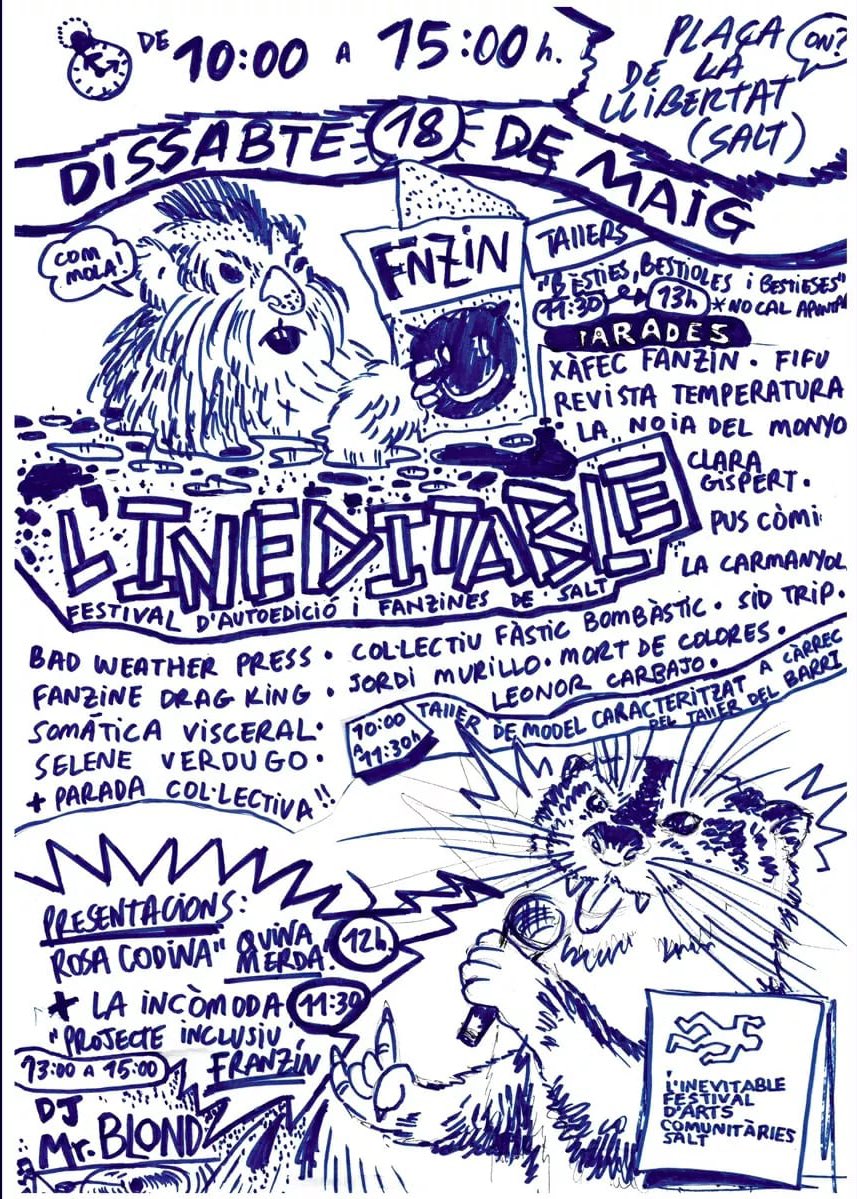 DE 10:00 A 15:00 h.
PLAÇA
DE LA
LLIBERTAT
(SALT)
ON?
DISSABTE 18 DE MAIG
COM
MOLA!
FNZIN
TALLERS
"BÈSTIES, BESTIOLES i BESTIESES"
11:30 13h * NO CAL
PARADES
XÀFEC FANZÍN · FIFU
REVISTA TEMPERATURA
LA NOIA DEL MONYO
CLARA
GISPERT ·
PUS CÒMI
LA CARMANYOL
L'INEDITABLE
FESTIVAL D'AUTOEDICIÓ i FANZINES DE SALT
COL·LECTIU FÀSTIC BOMBÀSTIC · SID TRIP ·
JORDI MURILLO · MORT DE COLORES ·
LEONOR CARBAJO ·
BAD WEATHER PRESS ·
FANZINE DRAG KING ·
SOMÁTICA VISCERAL ·
SELENE VERDUGO ·
+ PARADA COL·LECTIVA!!
10:00
A
11:30h
TALLER DE MODEL CARACTERITZAT A CÀRREC
DEL TALLER DEL BARRI
PRESENTACIONS:
ROSA CODINA "QUINA
MERDA" 12h.
+ LA INCÒMODA 11:30
"PROJECTE INCLUSIU
FRANZÍN
13:00 A 15:00
DJ
Mr. BLOND
L'INEVITABLE
FESTIVAL
D'ARTS
COMUNITÀRIES
SALT